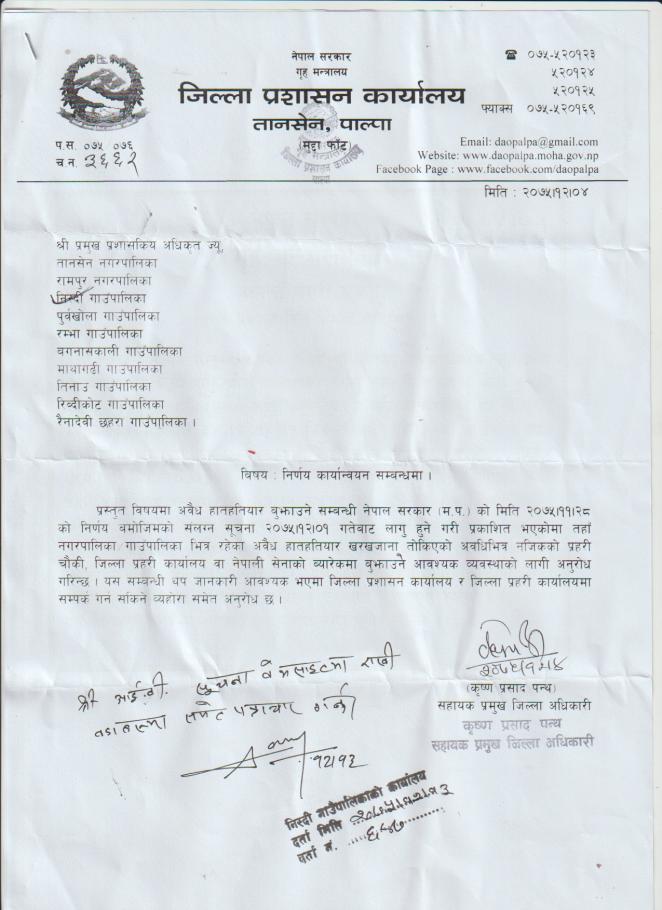 नेपाल सरकार
गृह मन्त्रालय
जिल्ला प्रशासन कार्यालय
तानसेन, पाल्पा
मुद्दा फाँट
☎ ०७५-५२०१२३
५२०१२४
५२०१२५
फ्याक्स ०७५-५२०१६९
प.स. ०७५ ०७६
च.न. ३६६२
Email: daopalpa@gmail.com
Website: www.daopalpa.moha.gov.np
Facebook Page : www.facebook.com/daopalpa
मिति : २०७५।१२।०४
श्री प्रमुख प्रशासकिय अधिकृत ज्यू,
तानसेन नगरपालिका
रामपुर नगरपालिका
निस्दी गाउंपालिका
पुर्वखोला गाउंपालिका
रम्भा गाउंपालिका
बगनासकाली गाउंपालिका
माथागढी गाउंपालिका
तिनाउ गाउंपालिका
रिब्दीकोट गाउंपालिका
रैनादेवी छहरा गाउंपालिका ।
विषय : निर्णय कार्यान्वयन सम्बन्धमा ।
प्रस्तुत विषयमा अवैध हातहतियार बुझाउने सम्बन्धी नेपाल सरकार (म.प.) को मिति २०७५।११।२८
को निर्णय बमोजिमको संलग्न सूचना २०७५।१२।०१ गतेबाट लागु हुने गरी प्रकाशित भएकोमा तहाँ
नगरपालिका गाउंपालिका भित्र रहेका अवैध हातहतियार खरखजाना तोकिएको अवधिभित्र नजिकको प्रहरी
चौकी, जिल्ला प्रहरी कार्यालय वा नेपाली सेनाको ब्यारेकमा बुझाउने आवश्यक व्यवस्थाको लागी अनुरोध
गरिन्छ । यस सम्बन्धी थप जानकारी आवश्यक भएमा जिल्ला प्रशासन कार्यालय र जिल्ला प्रहरी कार्यालयमा
सम्पर्क गर्न सकिने व्यहोरा समेत अनुरोध छ ।
(कृष्ण प्रसाद पन्थ)
सहायक प्रमुख जिल्ला अधिकारी
कृष्ण प्रसाद पन्थ
सहायक प्रमुख जिल्ला अधिकारी
श्री आई.टी. सूचना वेभसाइटमा राखी
समेत पत्राचार गर्नु
१२।१३
निस्दी गाउँपालिकाको कार्यालय
दर्ता मिति २०७५।१२।१३
दर्ता नं. ६४७